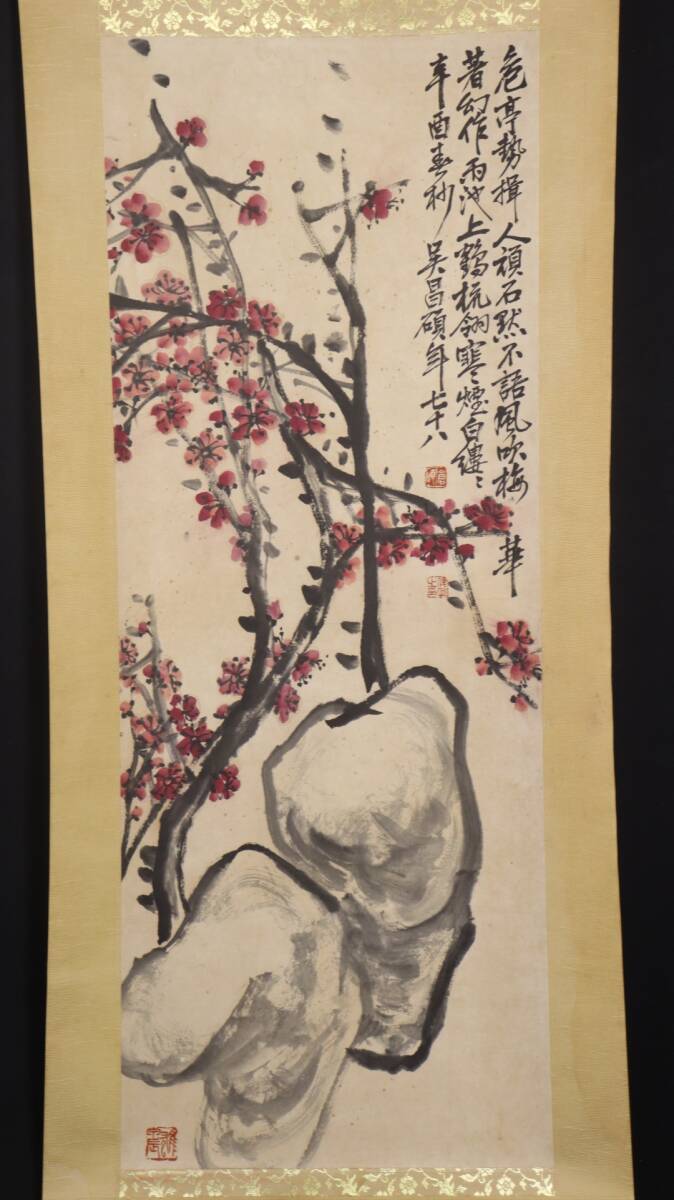 危亭勢揖人頑石默不語風吹梅華
著幻作雨池上鶴梳翎寒煙白縷〻
辛酉春杪 吳昌碩年七十八